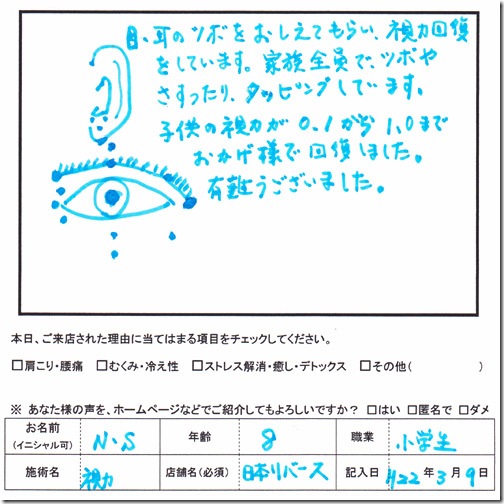 目、耳のツボをおしえてもらい、視力回復
をしています。家族全員で、ツボや
さすったり、タッピングしています。
子供の視力が 0.1から 1.0まで
おかげ様で回復しました。
有難うございました。
本日、ご来店された理由に当てはまる項目をチェックしてください。
□肩こり・腰痛 □むくみ・冷え性 □ストレス解消・癒し・デトックス □その他( )
※ あなた様の声を、ホームページなどでご紹介してもよろしいですか? □はい □匿名で □ダメ
お名前 (イニシャル可) N・S 年齢 8 職業 小学生
施術名 視力 店舗名(必須) 日本リバース 記入日 H22年3月9日